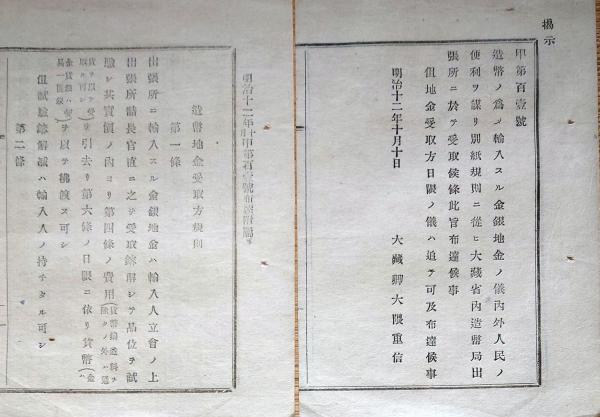 揭示
甲第百壹號
造幣ノ爲メ輸入スル金銀地金ノ儀內外人民ノ
便利ヲ謀リ別紙規則ニ從ヒ大藏省內造幣局出
張所ニ於テ受取候條此旨布達候事
但地金受取方日限ノ儀ハ追テ可及布達候事
明治十二年十月十日
大藏卿大隈重信
明治十二年甲第百壹號布達附屬
造幣地金受取方規則
第一條
出張所ニ輸入スル金銀地金ハ輸入人立會ノ上
出張所詰長官直ニ之ヲ受取鎔解シテ品位ヲ試
驗シ其實價ノ內ヨリ第四條ノ費用
ヲ引去リ第六條ノ日限ニ依リ貨幣
ヲ以テ拂渡ス可シ
但試驗鎔解減ハ輸入人ノ持チタル可シ
第二條